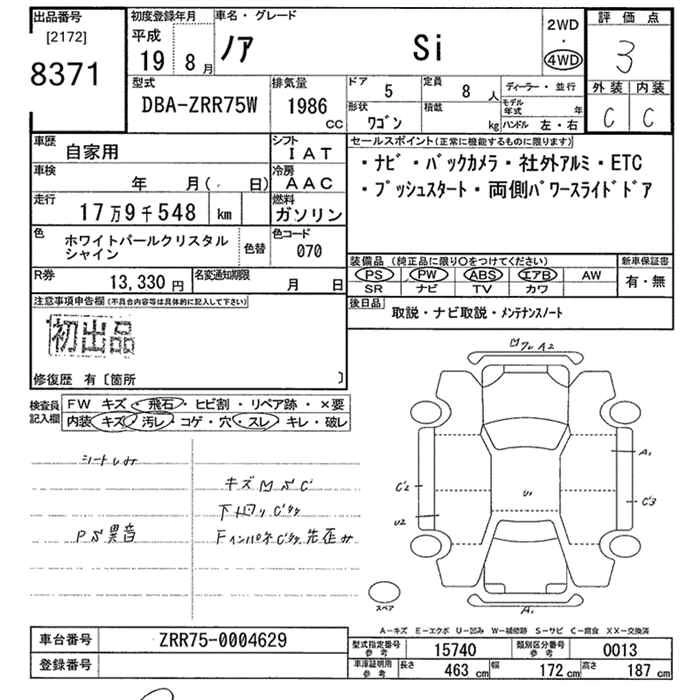 出品番号 初度登録年月 車名・グレード 評価点
[2172] 平成 2WD
8371 19 8月 ノア Si ・ 3
4WD
型式 排気量 ドア 定員 ディーラー・並行 外装 内装
DBA-ZRR75W 1986 5 8人 モデル年式 年 C C
CC 形状 積載
ワゴン kg ハンドル 左・右
車歴 シフト セールスポイント(正常に機能するものに限ります)
自家用 IAT ・ナビ・バックカメラ・社外アルミ・ETC
車検 冷房
年 月( 日) AAC ・プッシュスタート・両側パワースライドドア
走行 燃料
17万9千548 km ガソリン
色 色替 色コード
ホワイトパールクリスタル 070
シャイン
装備品(純正品に限り○をつけてください) 新車保証書
R券 名変通知期限 PS PW ABS エアB AW 有・無
13,330円 月 日 SR ナビ TV カワ
注意事項申告欄(不具合内容等は具体的に記入して下さい) 後日品
取説・ナビ取説・メンテナンスノート
初出品
修復歴 有〔箇所 〕
検査員 FW キズ・飛石・ヒビ割・リペア跡・×要
記入欄 内装 キズ・汚レ・コゲ・穴・スレ・キレ・破レ
シートしみ
PS異音
下回り
A2
A1
U1
U2
A1
スペア
A-キズ E-エクボ U-凹み W-補修跡 S-サビ C-腐食 XX-交換済
車台番号 ZRR75-0004629
登録番号
型式指定番号 参考 15740 類別区分番号 参考 0013
車庫証明用 参考 長さ 463cm 幅 172cm 高さ 187cm